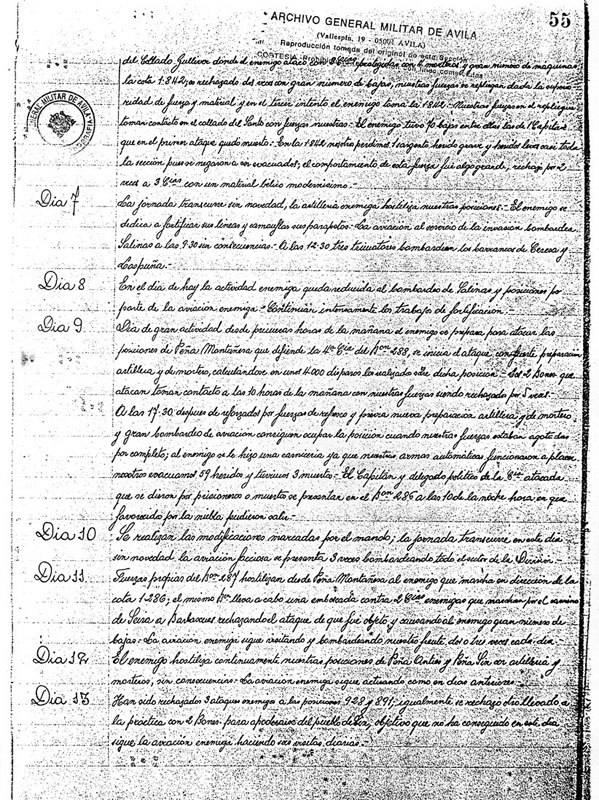 55
ARCHIVO GENERAL MILITAR DE AVILA
(Vallespin, 19 - 05001 AVILA)
Reproducción tomada del original de esta Sección
CORTESIA
del Collado Gullivor donde el enemigo ataco con 3 Cias protegidas con morteros y gran número de maquinas
la cota 1.842; es rechazado dos veces con gran número de bajas, nuestras fuerzas se repliegan dada la superio-
ridad de fuego y material y en el tercer intento el enemigo toma la 1842.- Nuestras fuerzas en el repliegue
toman contacto en el collado del Santo con fuerzas nuestras.- El enemigo tuvo 70 bajas entre ellas las de 1 Capitán
que en el primer ataque quedó muerto.- En la 1.842 nosotros perdimos 1 sargento herido grave y heridos leves casi toda
la sección pues se negaron a ser evacuados; el comportamiento de esta fuerza fué algo grande, rechazo por 2
veces a 3 Cias con un material bélico modernísimo.-
Dia 7 La jornada transcurre sin novedad, la artilleria enemiga hostiliza nuestras posiciones.- El enemigo se
dedica a fortificar sus lineas y camuflar sus parapetos.- La aviación al servicio de la invasión bombardea
Salinas a las 9.30 sin consecuencias.- A las 12.30 tres trimotores bombardean los barrancos de Ceresa y
Laspuña.-
Dia 8 En el dia de hoy la actividad enemiga queda reducida al bombardeo de Salinas y posiciones por
parte de la aviación enemiga.- Continúan intensamente los trabajos de fortificación.-
Dia 9 Dia de gran actividad desde primeras horas de la mañana el enemigo se prepara para atacar las
posiciones de Peña Montañesa que defiende la 4ª Cia del Bon 288, se inicia el ataque, con fuerte preparación
artillera y de mortero, calculandose en unos 4.000 disparos los realizados sobre dicha posición.- Los 2 Bones que
atacan toman contacto a las 10 horas de la mañana con nuestras fuerzas siendo rechazado por 5 veces.-
A las 17.30 despues de reforzados por fuerzas de refresco y previa nueva preparación artillera y de mortero
y gran bombardeo de aviación consiguen ocupar la posición cuando nuestras fuerzas estaban agotadas
por completo; al enemigo se le hizo una carniceria ya que nuestras armas automáticas funcionaron a placer
nosotros evacuamos 59 heridos y tuvimos 3 muertos.- El Capitán y delegado político de la Cia atacada
que se dieron por prisioneros o muertos se presentan en el Bon 286 a las 10 de la noche hora en que
favorecidos por la niebla pudieron salir.-
Dia 10 Se realizan las modificaciones marcadas por el mando; la jornada transcurre en este dia
sin novedad, la aviación facciosa se presenta 3 veces bombardeando todo el sector de la Division.-
Dia 11. Fuerzas propias del Bon 287 hostilizan desde Peña Montañesa al enemigo que marcha en dirección de la
cota 1.286; el mismo Bon lleva a cabo una emboscada contra 2 Cias enemigas que marchan por el camino
de Seira a Barbaruens rechazando el ataque de que fué objeto y causando al enemigo gran número de
bajas.- La aviación enemiga sigue visitando y bombardeando nuestro frente dos o tres veces cada dia.-
Dia 12 El enemigo hostiliza continuamente nuestras posiciones de Peña Cintius y Peña Sin con artilleria y
morteros, sin consecuencias.- La aviación enemiga sigue actuando como en dias anteriores.-
Dia 13 Han sido rechazados 3 ataques enemigos a las posiciones 928 y 891; igualmente se rechazó otro llevado a
la práctica con 2 Bones. para apoderarse del pueblo de Sin, objetivo que no ha conseguido en este dia
sigue la aviación enemiga haciendo sus visitas diarias.-